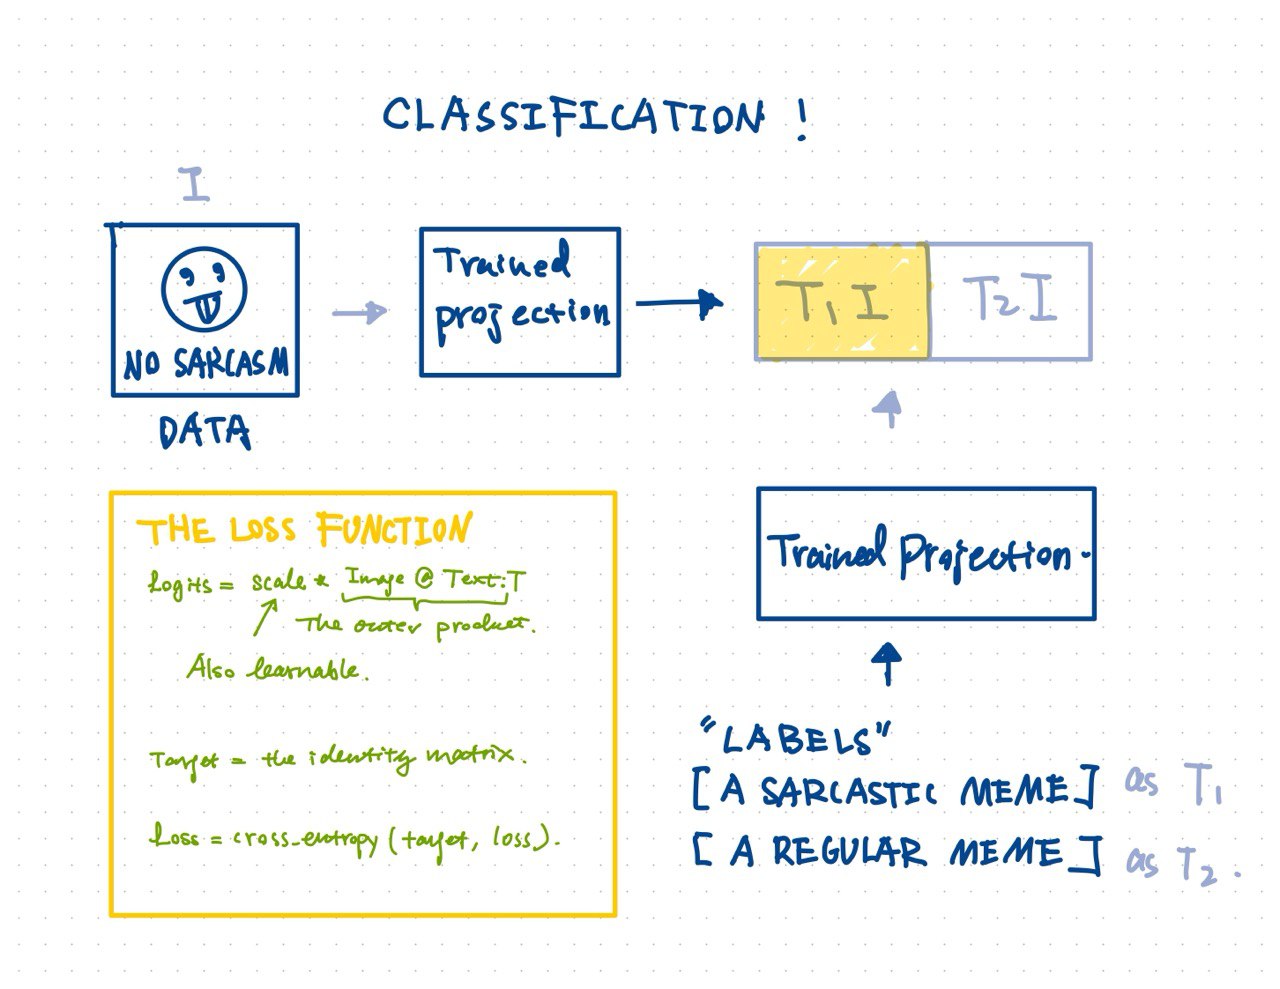 CLASSIFICATION !
I
NO SARCASM
DATA
Trained
projection
T₁ I
T₂ I
Trained Projection.
"LABELS"
[ A SARCASTIC MEME ] as T₁
[ A REGULAR MEME ] as T₂.
THE LOSS FUNCTION
Logits = scale * Image @ Text.T
The outer product.
Also learnable.
Target = the identity matrix.
Loss = cross_entropy (target, loss).